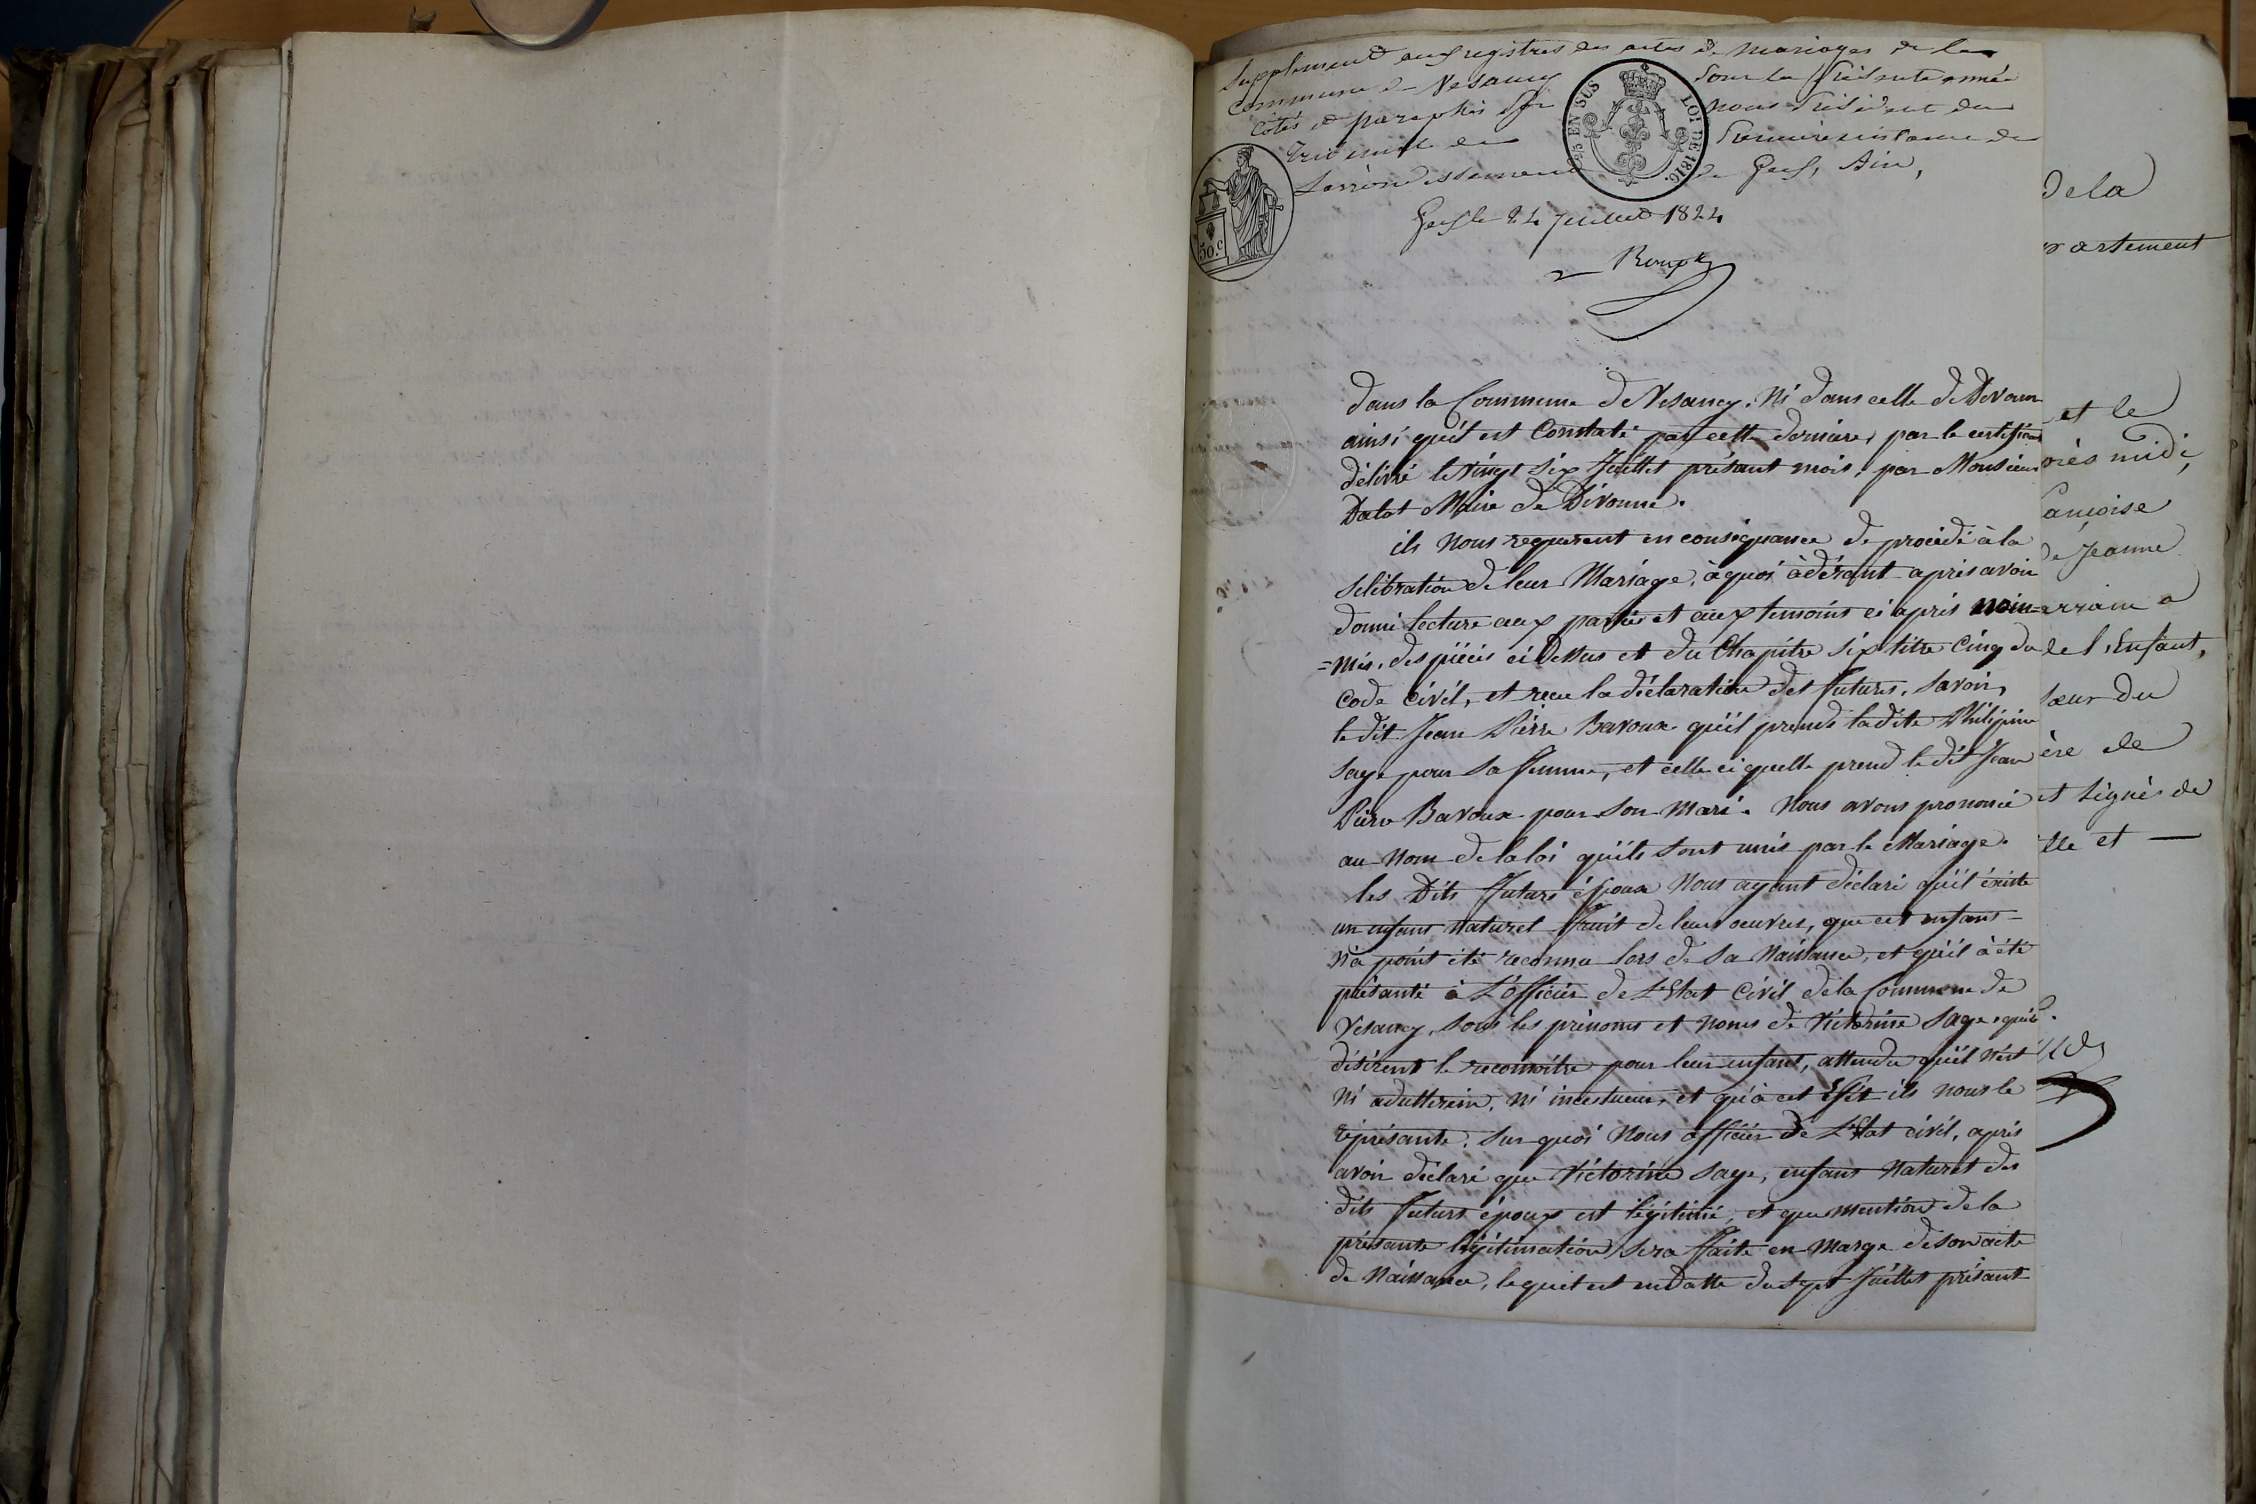 Supplement aux registres des actes de mariages de la
Commune de Vesancy pour la présente année
cotés et paraphés par nous Président du
Tribunal de Première instance de
L'arrondissement de Gex, Ain,
Gex le 24 Juillet 1824
EN SUS
LOI DE 1816.
50.c
dans la Commune de Vesancy. Ni dans celle de Divonne
ainsi qu'il est Constaté par cette dernière, par le certificat
délivré le Vingt Six Juillet présant mois, par Monsieur
Dalot Maire de Divonne.
ils Nous requerent en conséquance de procédé à la
Sélébration de leur Mariage, à quoi adérant après avoir
donné lecture aux parties et aux temoins ci après nom=
=més, des pièces ci Dessus et du Chapitre six titre Cinq du
Code Civil, et reçu la déclaration des futurs, Savoir,
le dit Jean Pierre Bavoux qu'il prend la dite Philipine
Sage pour Sa femme, et celle ci quelle prend le dit Jean
Pière Bavoux pour Son Mari. Nous avons prononcé
au Nom de la loi qu'ils sont unis par le Mariage.
les Dits Futurs époux Nous ayant déclaré qu'il éxiste
un enfans Naturel fruit de leurs oeuvres, que cet enfans
N'a point été reconnu lors de Sa Naissance, et qu'il à été
présanté à L'officier de L'Etat Civil de la Commune de
Vesancy, Sous les prénoms et Noms de Victorine Sage, qu'ils
désirent le reconnoître pour leur enfant, attendu qu'il n'est
Ni adultterin, Ni incestueux, et qu'à cet Effet ils nous le
représante. Sur quoi Nous officier de L'Etat civil, après
avoir déclaré que Victorine Sage, enfans Naturel des
dits futurs époux est légitimé, et que mention de la
présante légitimation Sera faite en Marge de son acte
de Naissance, lequel est en Datte du Sept Juillet présant
de la
partement
et le
près midi,
ançoise
de Jeanne
arraine a
de l'Enfant,
soeur du
ère de
et signés de
lle et